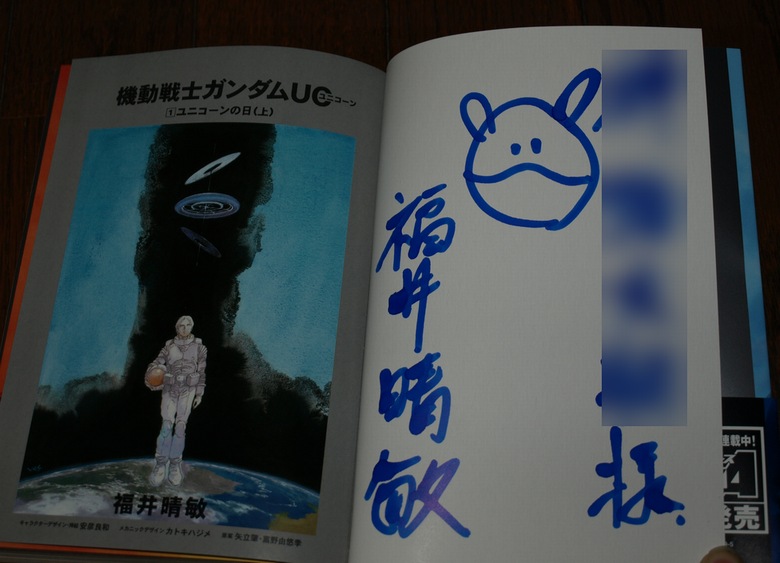 機動戦士ガンダムUC
ユニコーン
1 ユニコーンの日(上)
福井晴敏
キャラクターデザイン・挿絵 安彦良和 メカニックデザイン カトキハジメ 原案 矢立肇・富野由悠季
福井晴敏
様
連載中!
4
発売